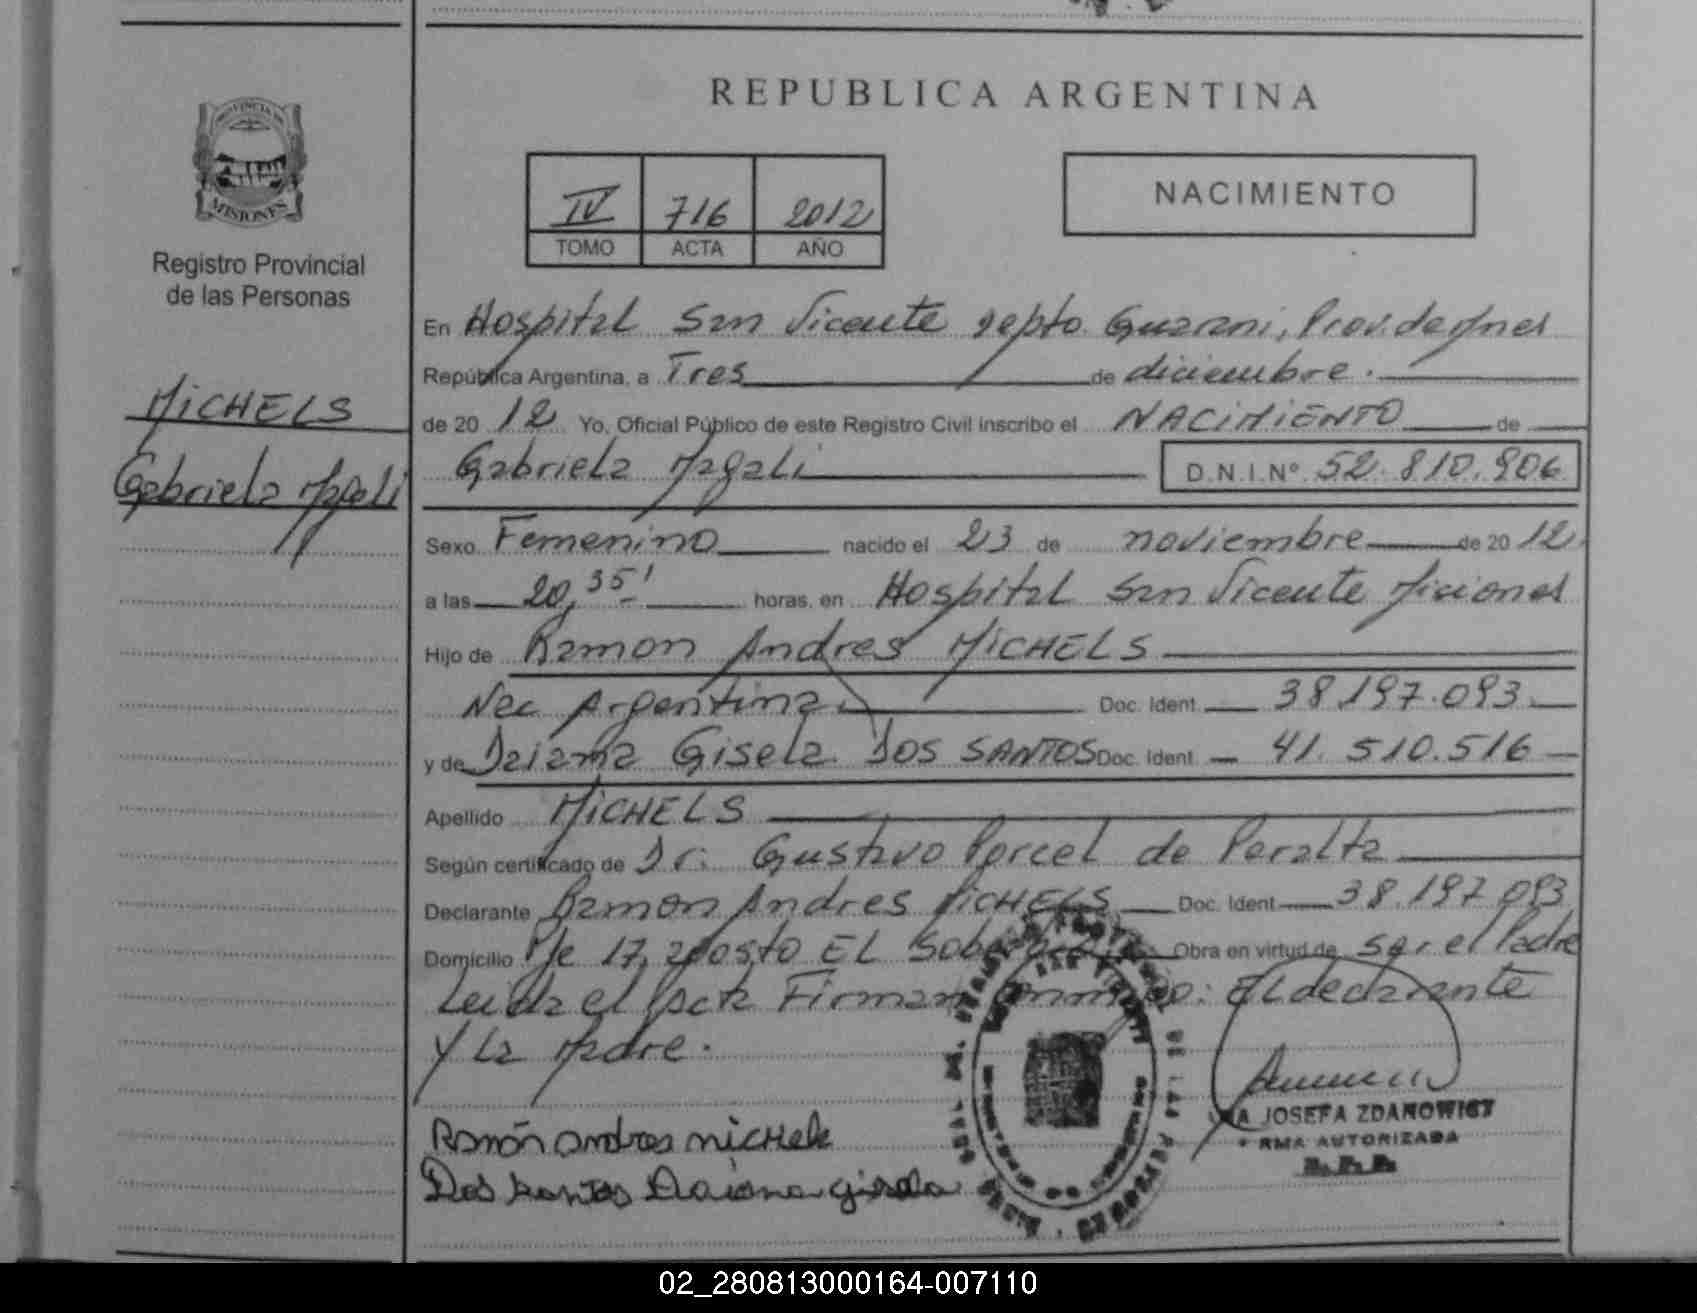 REPUBLICA ARGENTINA
PROVINCIA DE
MISIONES
Registro Provincial
de las Personas
IV 716 2012
TOMO ACTA AÑO
NACIMIENTO
MICHELS
Gabriela Magali
En Hospital San Vicente depto Guarani, Prov. de Mnes
República Argentina, a Tres de diciembre.
de 20 12 Yo, Oficial Público de este Registro Civil inscribo el NACIMIENTO de
Gabriela Magali D.N.I.Nº 52.810.906
Sexo Femenino nacido el 23 de noviembre de 20 12
a las 20,35' horas, en Hospital San Vicente Misiones
Hijo de Ramon Andres MICHELS
Nac Argentina Doc. Ident. 38.197.093
y de Daiana Gisela DOS SANTOS Doc. Ident. 41.510.516
Apellido MICHELS
Según certificado de Dr: Gustavo Porcel de Peralta
Declarante Ramon Andres MICHELS Doc. Ident. 38.197.093
Domicilio 17 agosto EL Obra en virtud de ser el Padre
Leida el acta Firman El declarante
y La Madre.
Ramón andres michels
Dos Santos Daiana gisela
JOSEFA ZDANOWICZ
RMA AUTORIZADA
02_280813000164-007110